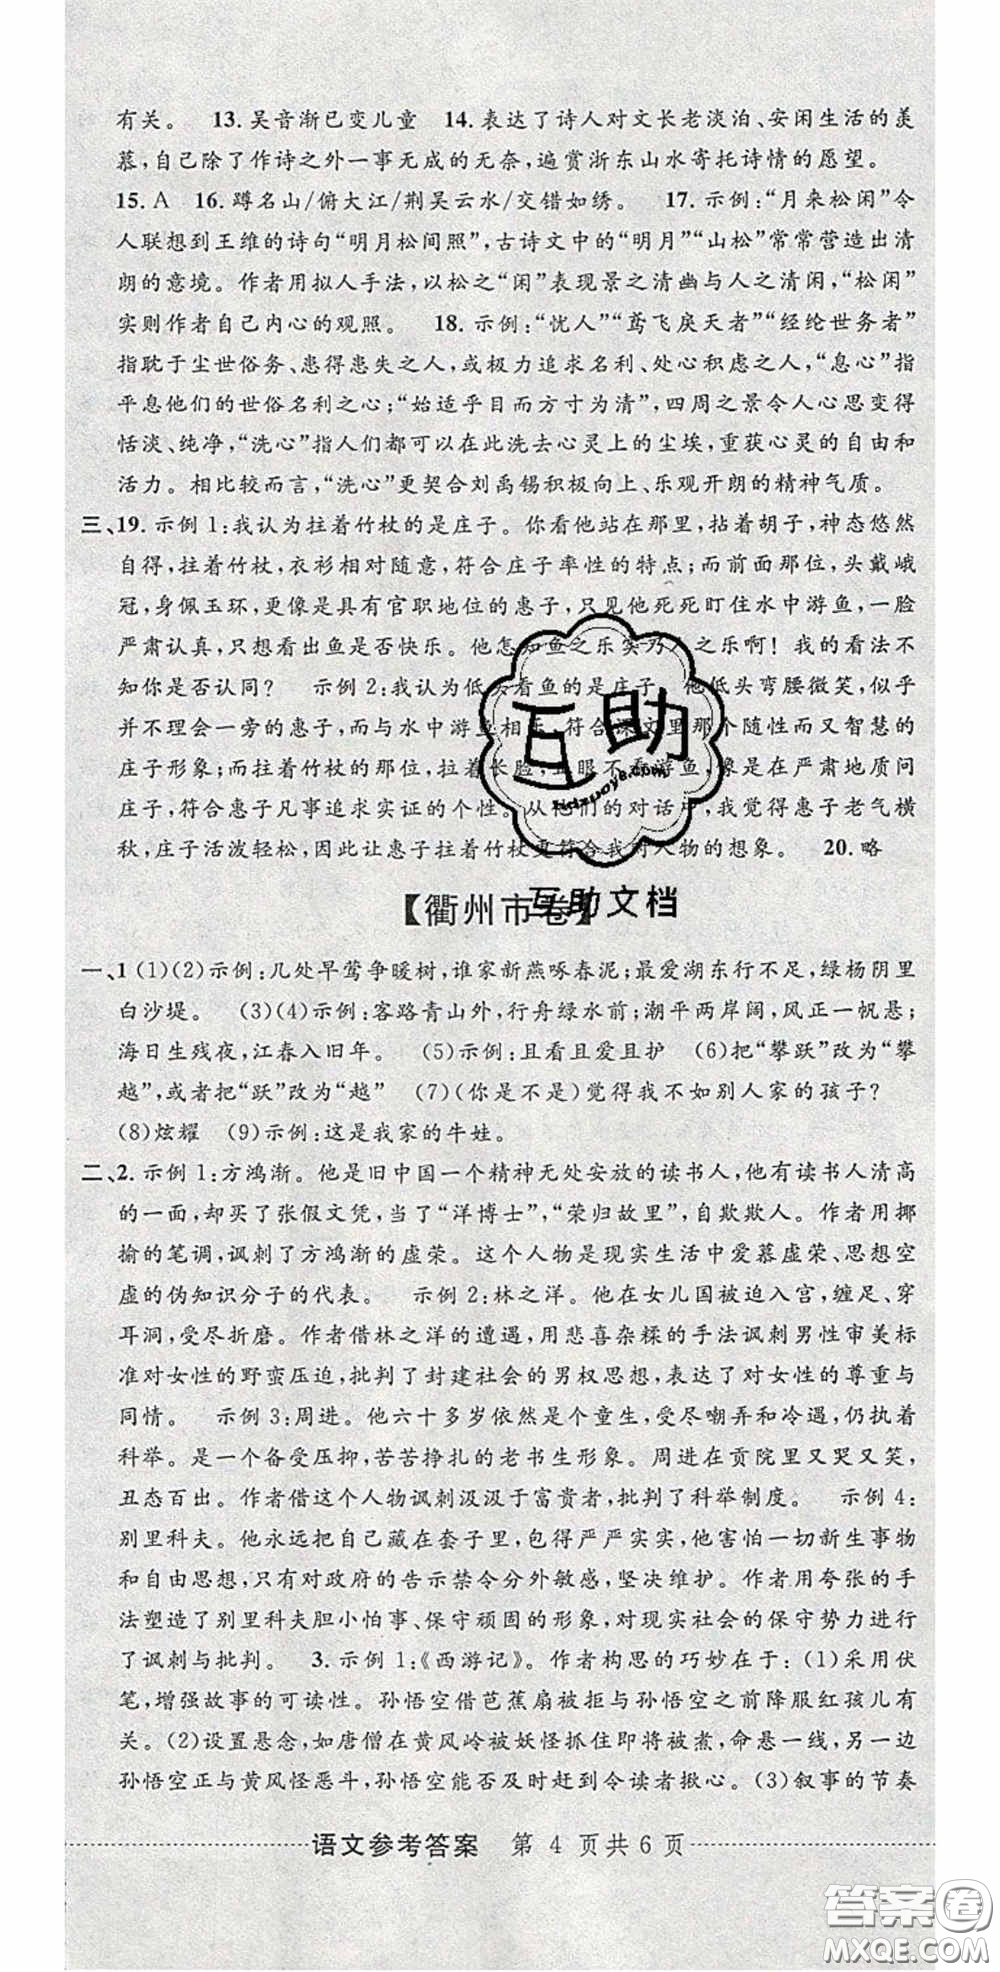 有关。 13. 吴音渐已变儿童 14. 表达了诗人对文长老淡泊、安闲生活的羡
慕,自己除了作诗之外一事无成的无奈,遍赏浙东山水寄托诗情的愿望。
15. A 16. 蹲名山/俯大江/荆吴云水/交错如绣。 17. 示例:“月来松闲”令
人联想到王维的诗句“明月松间照”,古诗文中的“明月”“山松”常常营造出清
朗的意境。作者用拟人手法,以松之“闲”表现景之清幽与人之清闲,“松闲”
实则作者自己内心的观照。 18. 示例:“忧人”“鸢飞戾天者”“经纶世务者”
指耽于尘世俗务、患得患失之人,或极力追求名利、处心积虑之人,“息心”指
平息他们的世俗名利之心;“始适乎目而方寸为清”,四周之景令人心思变得
恬淡、纯净,“洗心”指人们都可以在此洗去心灵上的尘埃,重获心灵的自由和
活力。相比较而言,“洗心”更契合刘禹锡积极向上、乐观开朗的精神气质。
三、19. 示例1:我认为拄着竹杖的是庄子。你看他站在那里,拈着胡子,神态悠然
自得,拄着竹杖,衣衫相对随意,符合庄子率性的特点;而前面那位,头戴峨
冠,身佩玉环,更像是具有官职地位的惠子,只见他死死盯住水中游鱼,一脸
严肃认真,只想看出鱼是否快乐。他怎知鱼之乐实乃人之乐啊!我的看法不
知你是否认同? 示例2:我认为低头看鱼的是庄子。他低头弯腰微笑,似乎
并不理会一旁的惠子,而与水中游鱼相乐,符合课文里那个随性而又智慧的
庄子形象;而拄着竹杖的那位,拉着长脸,正眼不看游鱼,像是在严肃地质问
庄子,符合惠子凡事追求实证的个性。从他们的对话中,我觉得惠子老气横
秋,庄子活泼轻松,因此让惠子拄着竹杖更符合我对人物的想象。 20. 略
【衢州市卷】
一、1 (1)(2)示例:几处早莺争暖树,谁家新燕啄春泥;最爱湖东行不足,绿杨阴里
白沙堤。 (3)(4)示例:客路青山外,行舟绿水前;潮平两岸阔,风正一帆悬;
海日生残夜,江春入旧年。 (5)示例:且看且爱且护 (6)把“攀跃”改为“攀
越”,或者把“跃”改为“越” (7)(你是不是)觉得我不如别人家的孩子?
(8)炫耀 (9)示例:这是我家的牛娃。
二、2. 示例1:方鸿渐。他是旧中国一个精神无处安放的读书人,他有读书人清高
的一面,却买了张假文凭,当了“洋博士”,“荣归故里”,自欺欺人。作者用揶
揄的笔调,讽刺了方鸿渐的虚荣。这个人物是现实生活中爱慕虚荣、思想空
虚的伪知识分子的代表。 示例2:林之洋。他在女儿国被迫入宫,缠足、穿
耳洞,受尽折磨。作者借林之洋的遭遇,用悲喜杂糅的手法讽刺男性审美标
准对女性的野蛮压迫,批判了封建社会的男权思想,表达了对女性的尊重与
同情。 示例3:周进。他六十多岁依然是个童生,受尽嘲弄和冷遇,仍执着
科举。是一个备受压抑,苦苦挣扎的老书生形象。周进在贡院里又哭又笑,
丑态百出。作者借这个人物讽刺汲汲于富贵者,批判了科举制度。 示例4:
别里科夫。他永远把自己藏在套子里,包得严严实实,他害怕一切新生事物
和自由思想,只有对政府的告示禁令分外敏感,坚决维护。作者用夸张的手
法塑造了别里科夫胆小怕事、保守顽固的形象,对现实社会的保守势力进行
了讽刺与批判。 3. 示例1:《西游记》。作者构思的巧妙在于:(1)采用伏
笔,增强故事的可读性。孙悟空借芭蕉扇被拒与孙悟空之前降服红孩儿有
关。(2)设置悬念,如唐僧在黄风岭被妖怪抓住即将被煮,命悬一线,另一边
孙悟空正与黄风怪恶斗,孙悟空能否及时赶到令读者揪心。(3)叙事的节奏
语文参考答案 第 4 页共 6 页
互助
hdzuoye8.com
互助文档
答案圈
MXQE.COM